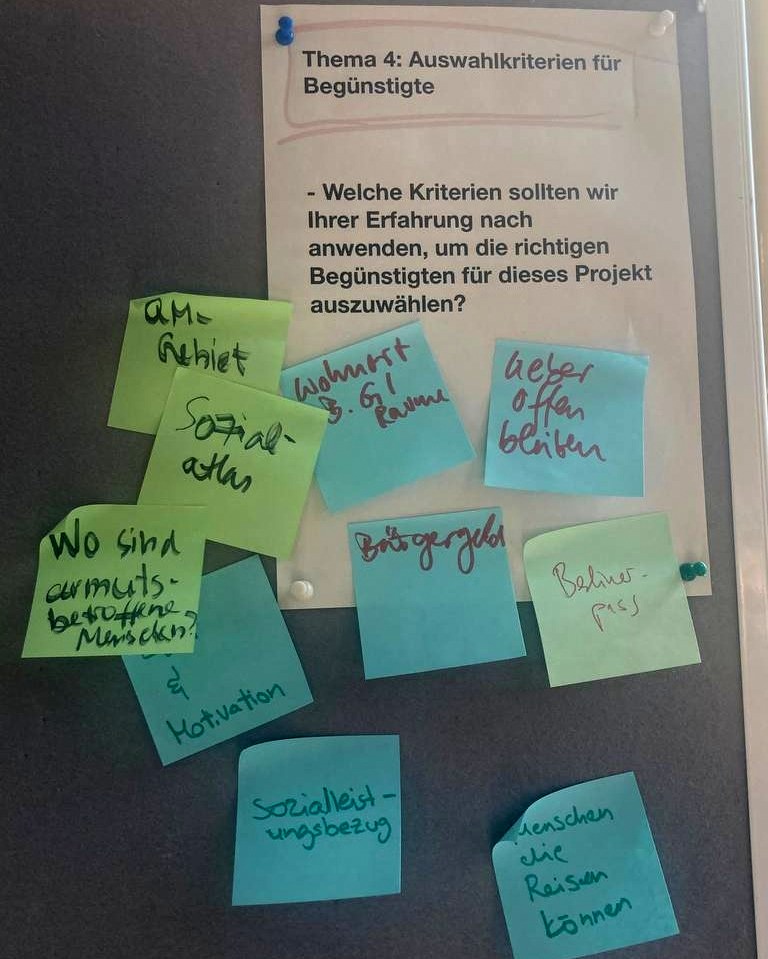 Thema 4: Auswahlkriterien für
Begünstigte
- Welche Kriterien sollten wir
Ihrer Erfahrung nach
anwenden, um die richtigen
Begünstigten für dieses Projekt
auszuwählen?
QM-
Gebiet
Sozial-
atlas
Wohnort
Räume
lieber
offen
bleiben
Wo sind
armuts-
betroffene
Menschen?
&
Motivation
Bürgergeld
Berliner-
pass
Sozialleist-
ungsbezug
Menschen
die
Reisen
können